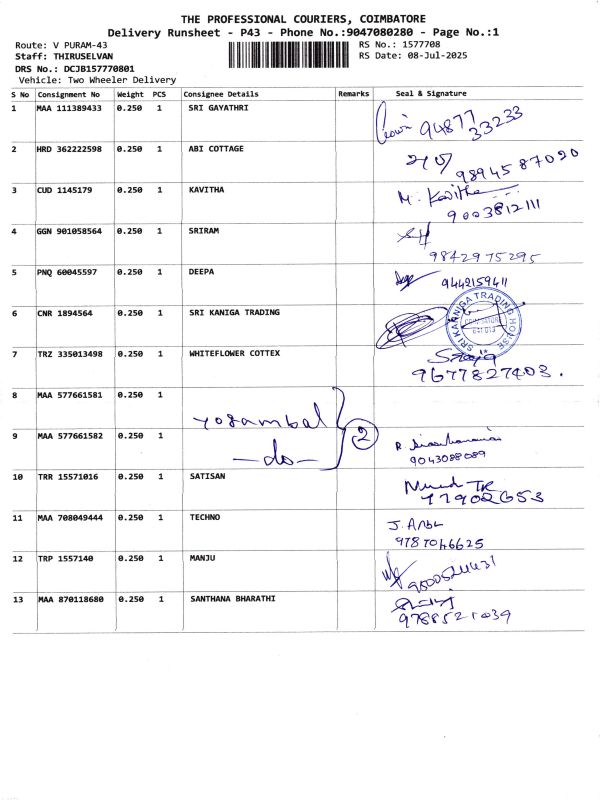 THE PROFESSIONAL COURIERS, COIMBATORE
Delivery Runsheet - P43 - Phone No.:9047080280 - Page No.:1
Route: V PURAM-43 RS No.: 1577708
Staff: THIRUSELVAN RS Date: 08-Jul-2025
DRS No.: DCJB157770801
Vehicle: Two Wheeler Delivery
S No Consignment No Weight PCS Consignee Details Remarks Seal & Signature
1 MAA 111389433 0.250 1 SRI GAYATHRI 94877 33233
2 HRD 362222598 0.250 1 ABI COTTAGE 98945 87020
3 CUD 1145179 0.250 1 KAVITHA M. Kavitha
9003812111
4 GGN 901058564 0.250 1 SRIRAM
9842975295
5 PNQ 60045597 0.250 1 DEEPA 9442159411
6 CNR 1894564 0.250 1 SRI KANIGA TRADING SRI KANNIGA TRADING HOUSE COIMBATORE 641 013
7 TRZ 335013498 0.250 1 WHITEFLOWER COTTEX
9677827403.
8 MAA 577661581 0.250 1 yogambal
2
9 MAA 577661582 0.250 1 -do-
9043088089
10 TRR 15571016 0.250 1 SATISAN
11 MAA 708049444 0.250 1 TECHNO J. Anbu
9787046625
12 TRP 1557140 0.250 1 MANJU
13 MAA 870118680 0.250 1 SANTHANA BHARATHI